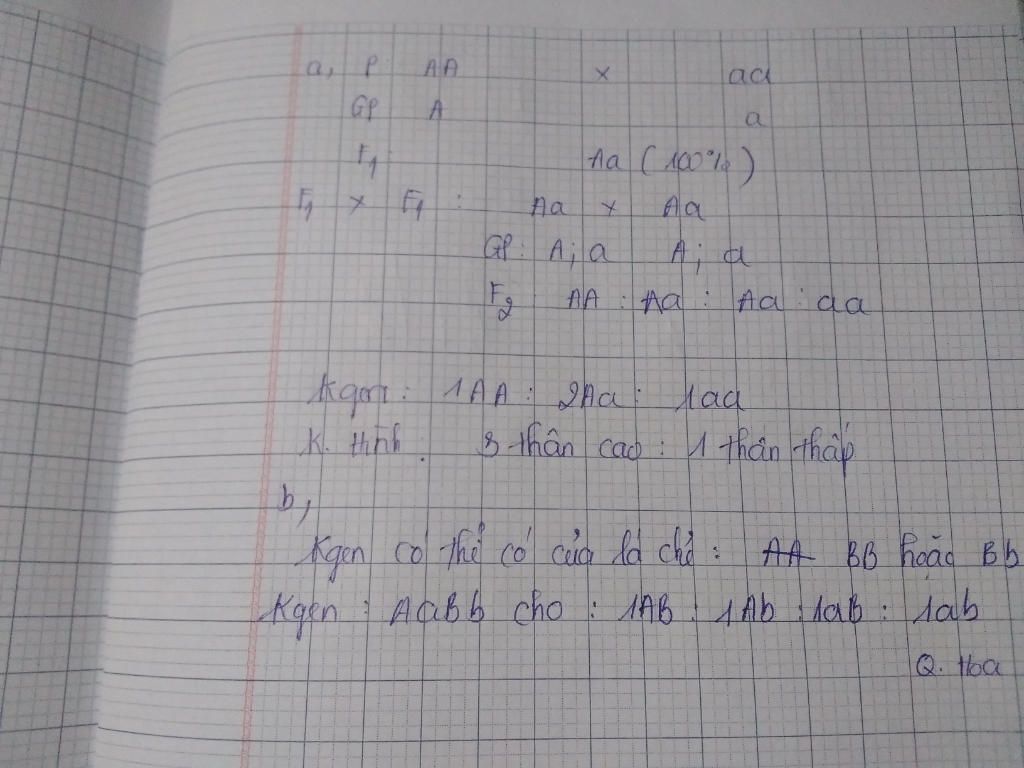 a, P AA x aa
GP A a
F1: Aa (100%)
F1 x F1 : Aa x Aa
GP: A; a A; a
F2 AA : Aa : Aa : aa
Kgen : 1AA : 2Aa : 1aa
K. hình : 3 thân cao : 1 thân thấp
b,
Kgen có thể có của lá chẻ : AA BB hoặc Bb
Kgen : AaBb cho : 1AB : 1Ab : 1aB : 1ab
Q. Hoa